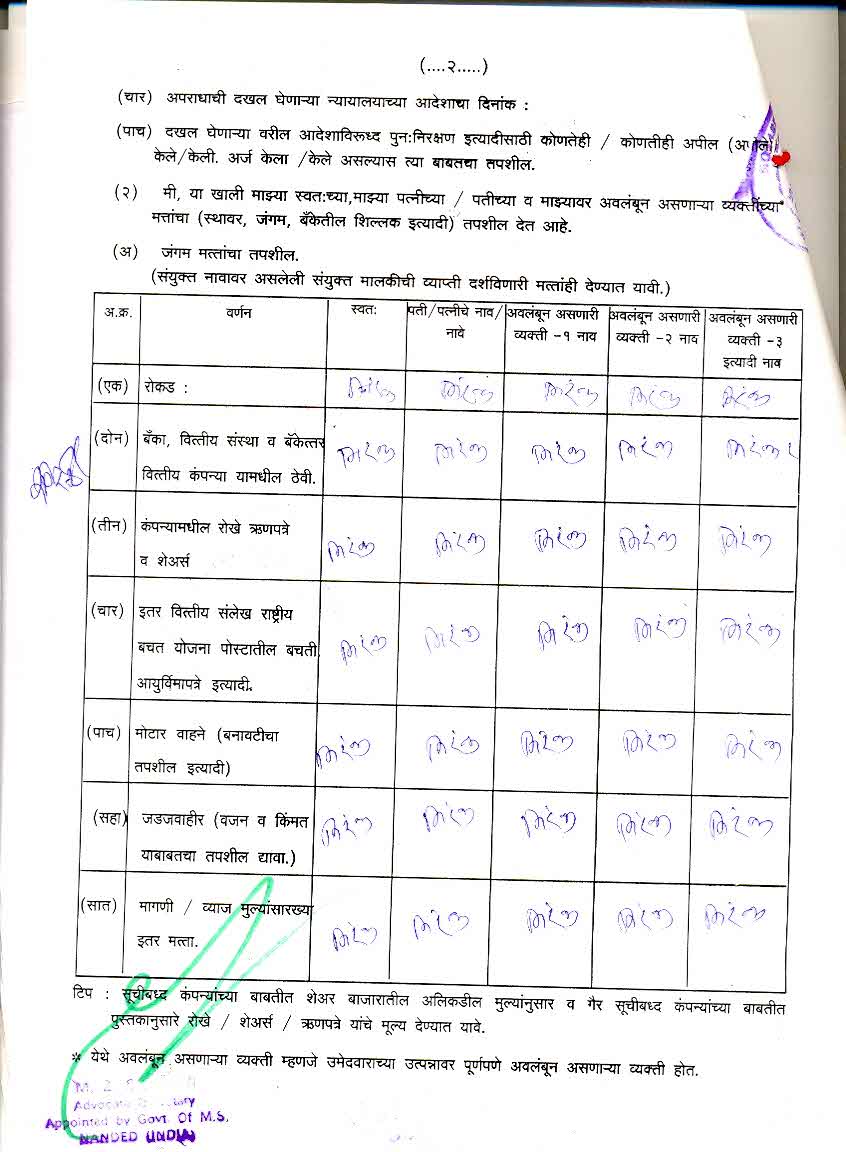 (....२.....)
(चार) अपराधाची दखल घेणाऱ्या न्यायालयाच्या आदेशाचा दिनांक :
(पाच) दखल घेणाऱ्या वरील आदेशाविरूध्द पुन:निरक्षण इत्यादीसाठी कोणतेही / कोणतीही अपील (अपीले)
केले/केली. अर्ज केला /केले असल्यास त्या बाबतचा तपशील.
(२) मी, या खाली माझ्या स्वत:च्या,माझ्या पत्नीच्या / पतीच्या व माझ्यावर अवलंबून असणाऱ्या व्यक्तींच्या*
मत्तांचा (स्थावर, जंगम, बँकेतील शिल्लक इत्यादी) तपशील देत आहे.
(अ) जंगम मत्तांचा तपशील.
(संयुक्त नावावर असलेली संयुक्त मालकीची व्याप्ती दर्शविणारी मत्तांही देण्यात यावी.)
अ.क्र. वर्णन स्वत: पती/पत्नीचे नाव/ अवलंबून असणारी अवलंबून असणारी अवलंबून असणारी
नावे व्यक्ती -१ नाव व्यक्ती -२ नाव व्यक्ती -३
इत्यादी नाव
(एक) रोकड : निरंक निरंक निरंक निरंक निरंक
(दोन) बँका, वित्तीय संस्था व बँकेत्तर निरंक निरंक निरंक निरंक निरंक
वित्तीय कंपन्या यामधील ठेवी.
(तीन) कंपन्यामधील रोखे ऋणपत्रे निरंक निरंक निरंक निरंक निरंक
व शेअर्स
(चार) इतर वित्तीय संलेख राष्ट्रीय निरंक निरंक निरंक निरंक निरंक
बचत योजना पोस्टातील बचती
आयुर्विमापत्रे इत्यादी.
(पाच) मोटार वाहने (बनावटीचा निरंक निरंक निरंक निरंक निरंक
तपशील इत्यादी)
(सहा) जडजवाहीर (वजन व किंमत निरंक निरंक निरंक निरंक निरंक
याबाबतचा तपशील द्यावा.)
(सात) मागणी / व्याज मुल्यांसारख्या निरंक निरंक निरंक निरंक निरंक
इतर मत्ता.
टिप : सूचीबध्द कंपन्यांच्या बाबतीत शेअर बाजारातील अलिकडील मुल्यांनुसार व गैर सूचीबध्द कंपन्यांच्या बाबतीत
पुस्तकानुसारे रोखे / शेअर्स / ऋणपत्रे यांचे मूल्य देण्यात यावे.
* येथे अवलंबून असणाऱ्या व्यक्ती म्हणजे उमेदवाराच्या उत्पन्नावर पूर्णपणे अवलंबून असणाऱ्या व्यक्ती होत.
Advocate
Appointed by Govt. Of M.S.
NANDED (INDIA)